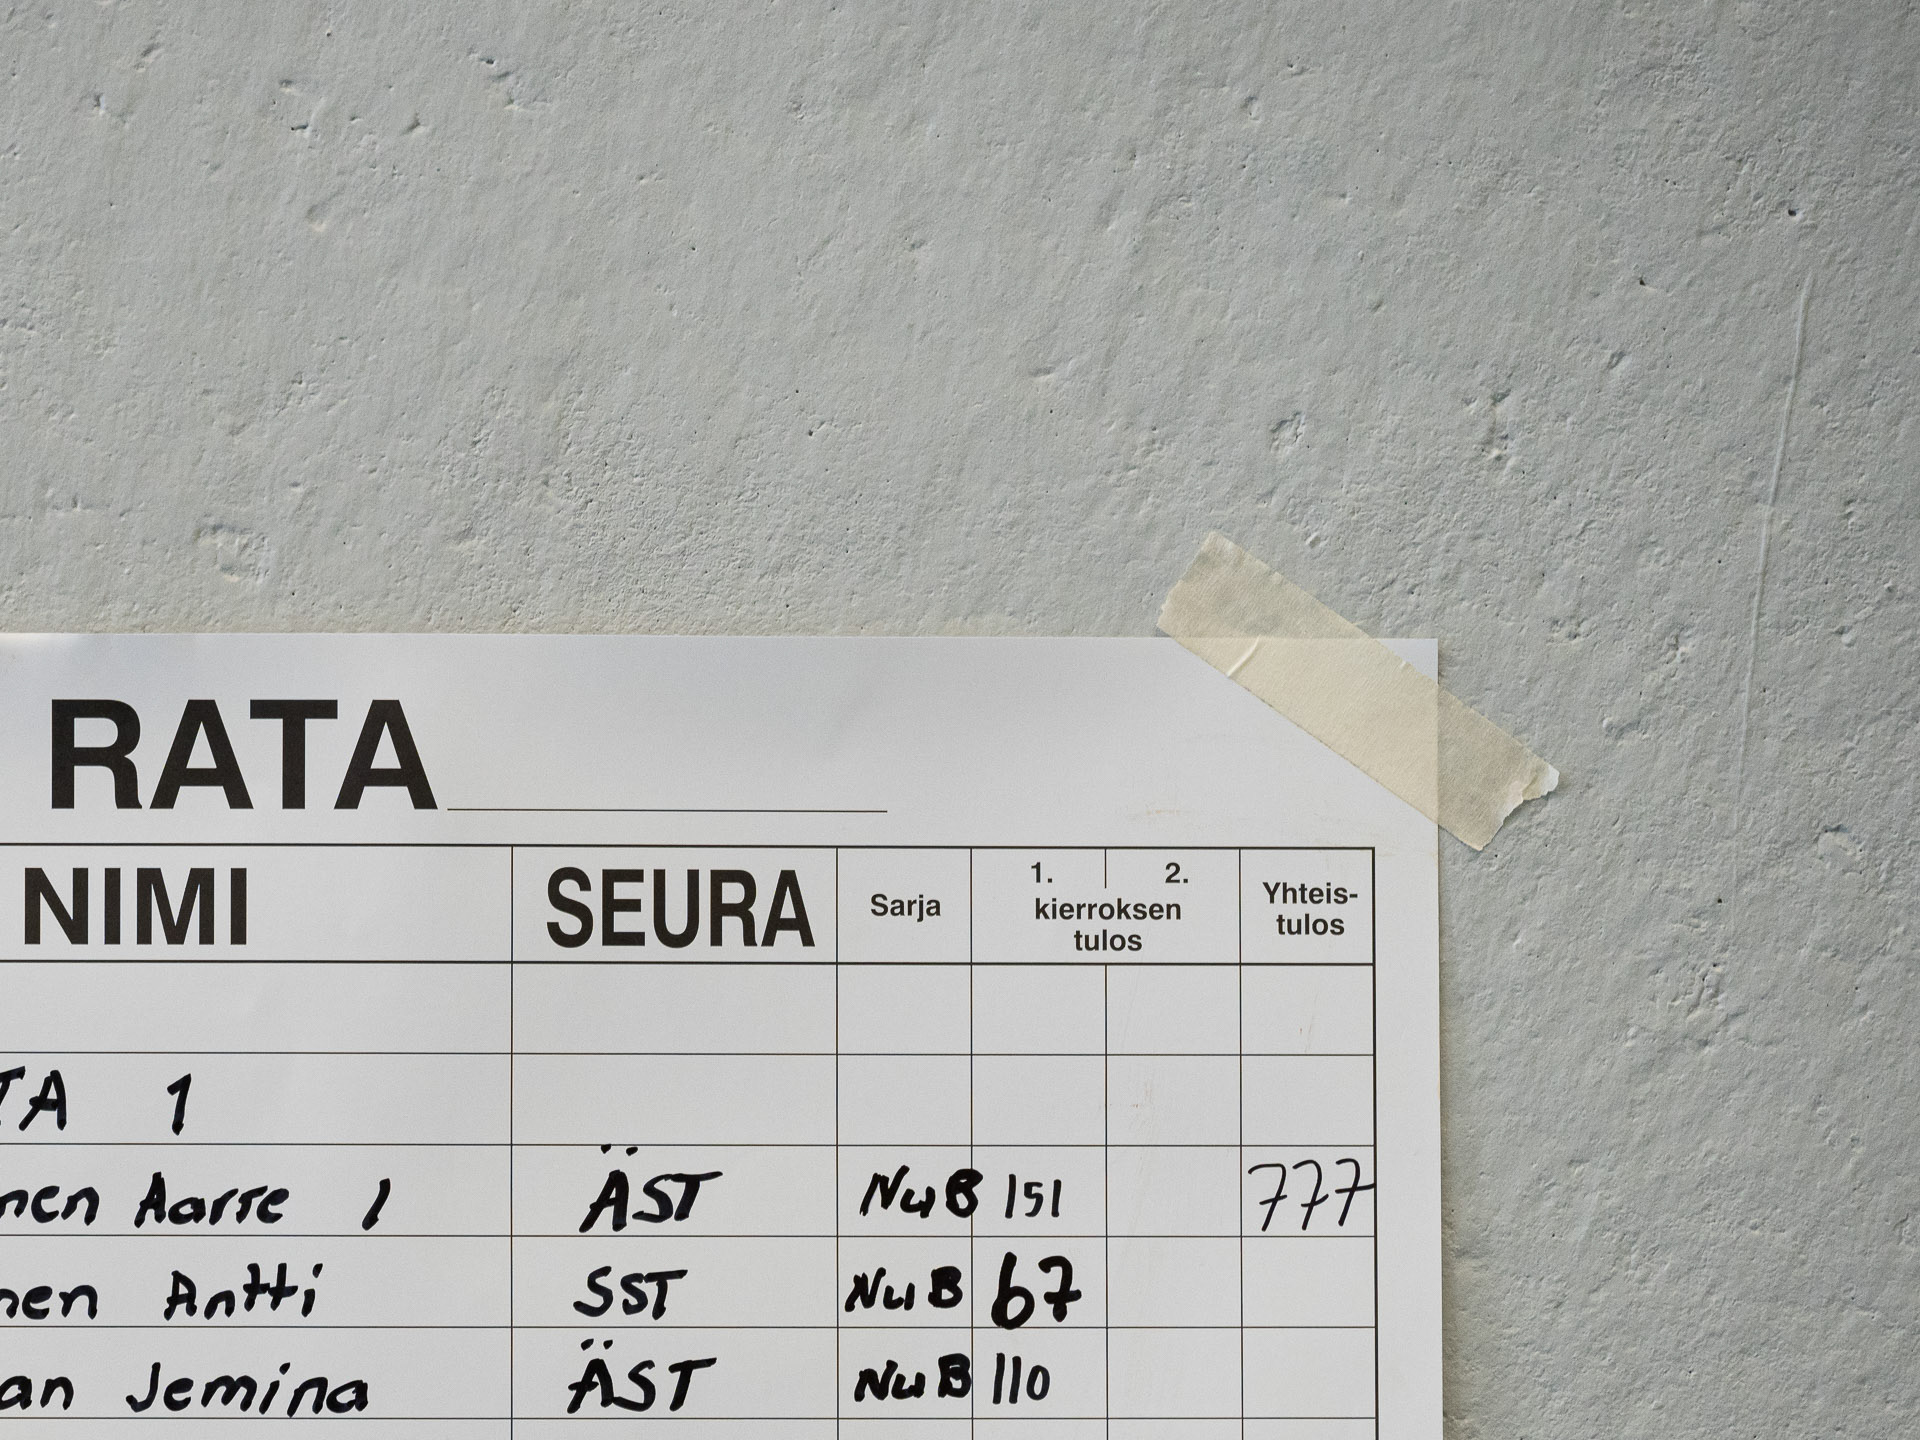 RATA
NIMI SEURA Sarja 1. 2. kierroksen tulos Yhteis-tulos
TA 1
nen Aarre 1 ÄST NuB 151 777
nen Antti SST NuB 67
an Jemina ÄST NuB 110